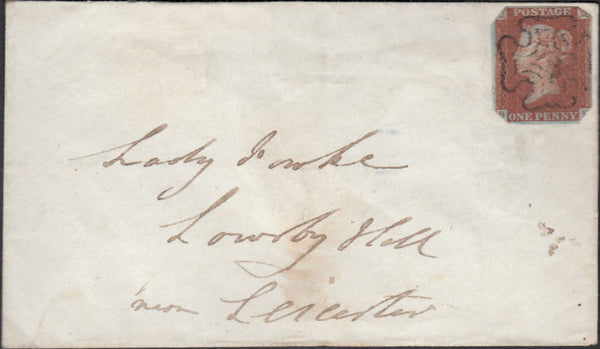 POSTAGE
ONE PENNY
Lady Fowke
Lowesby Hall
near Leicester